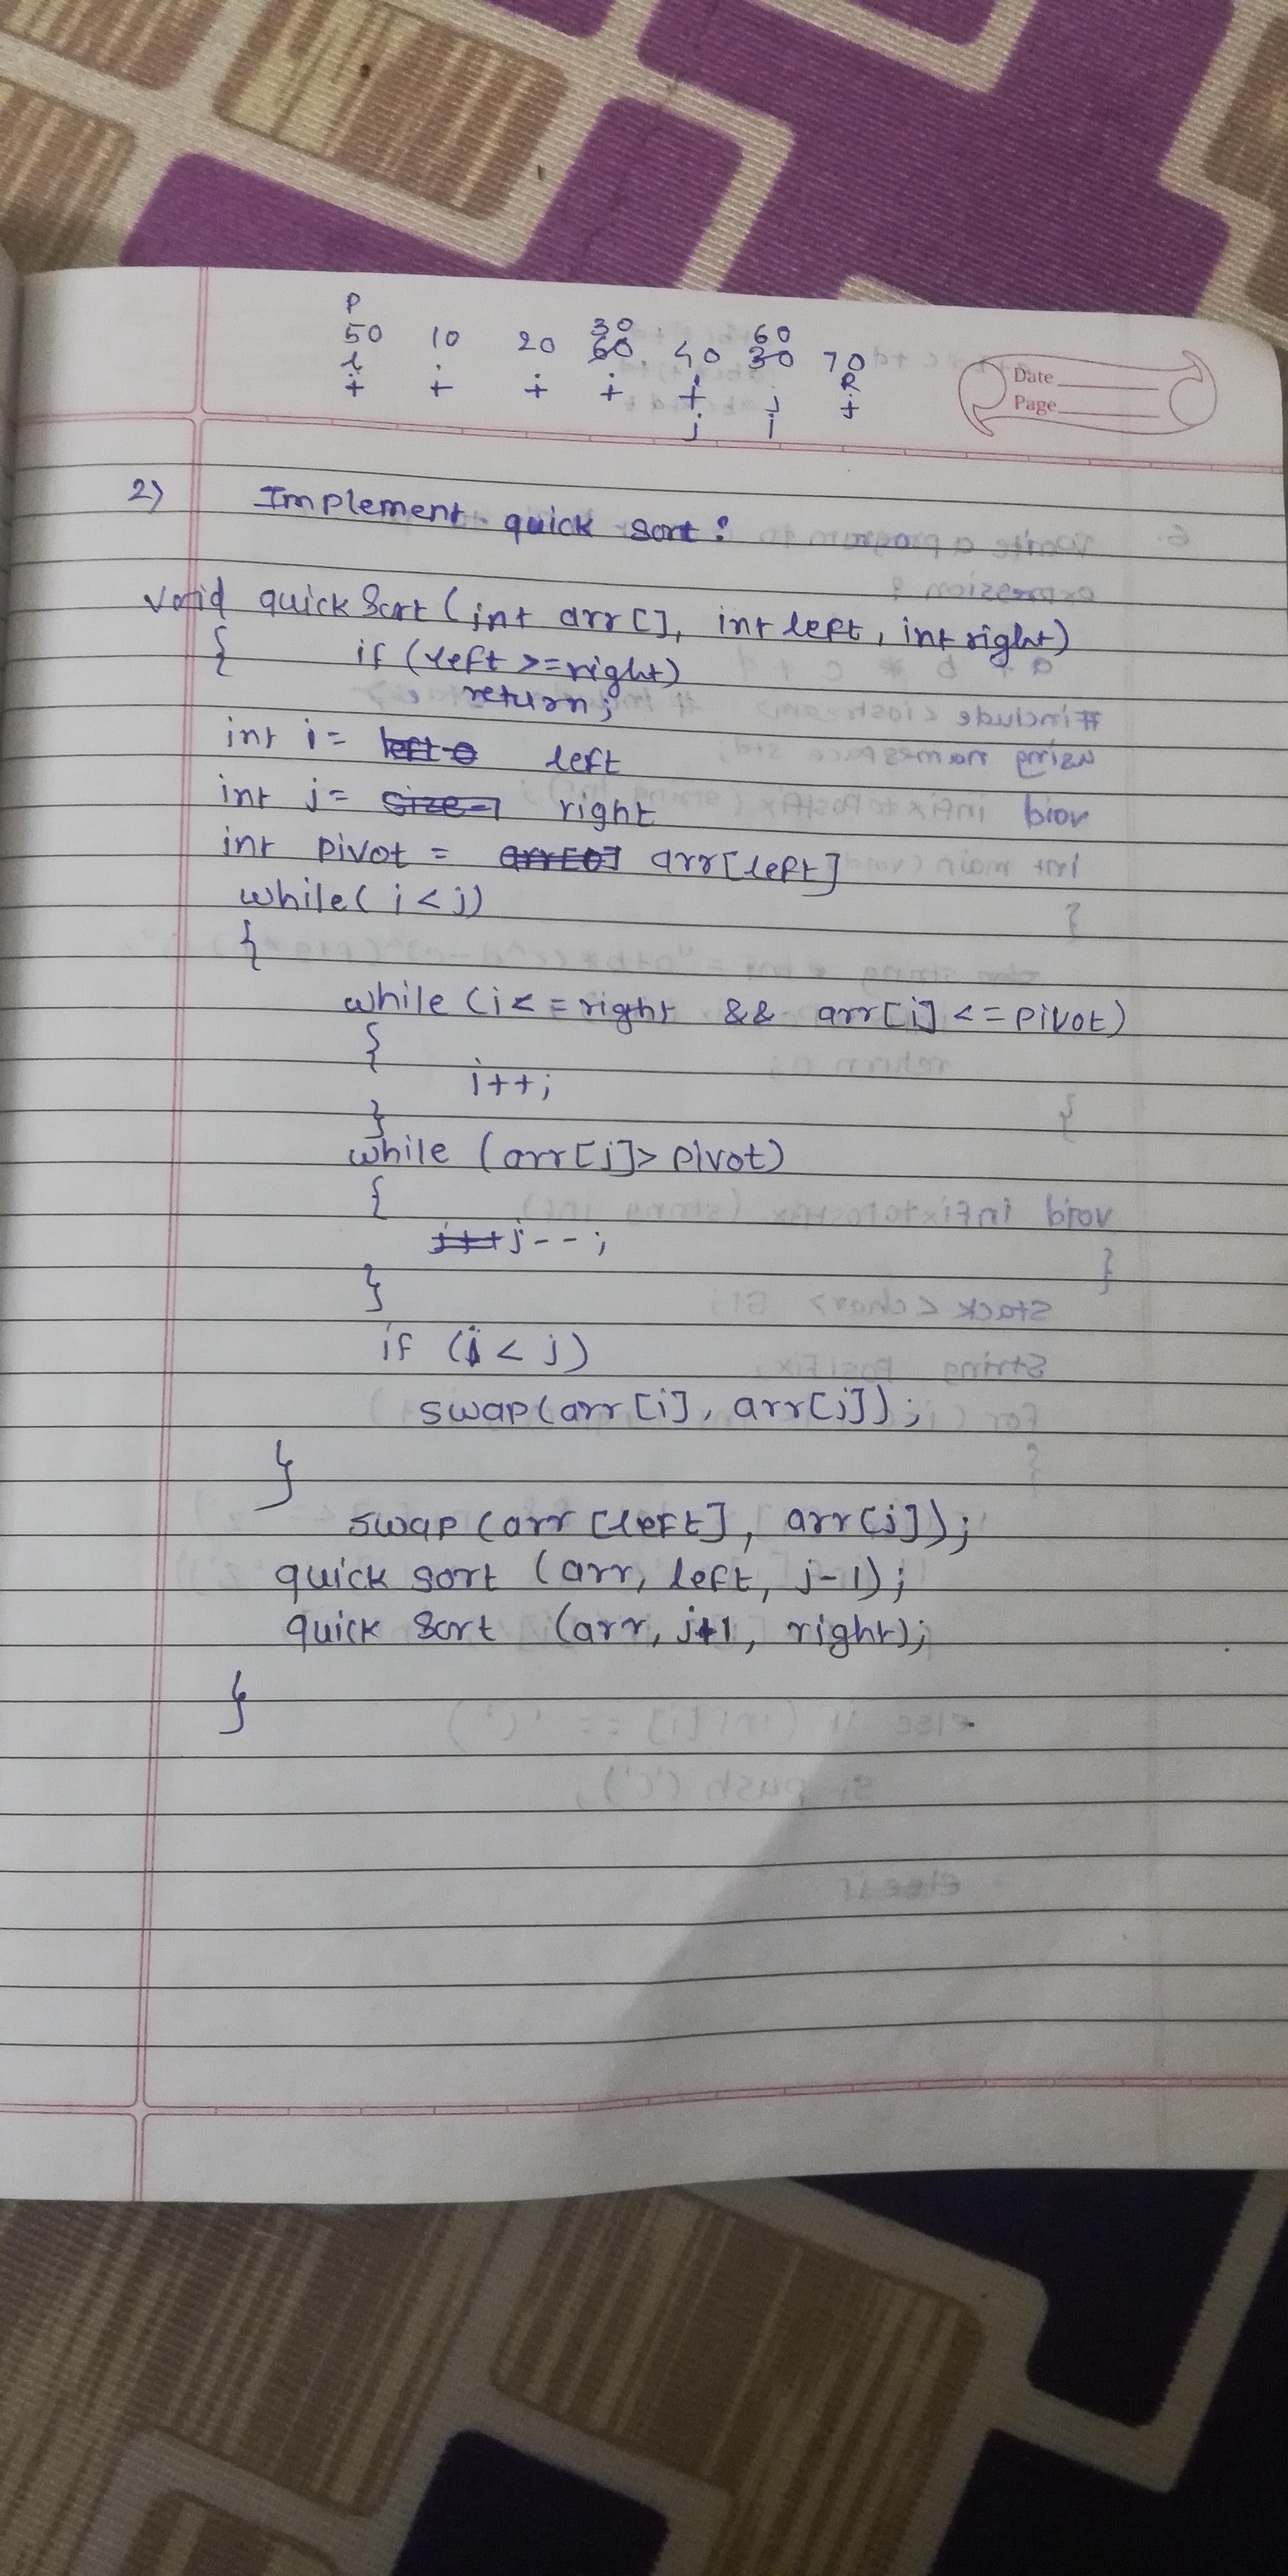 P
30 60
50 10 20 60 40 30 70
l i i i i j R
i j i j
Date
Page
2) Implement quick sort:
void quick Sort (int arr [], int left, int right)
{ if (left >= right)
return;
int i = left 0 left
int j = size-1 right
int pivot = arr[0] arr[left]
while( i < j)
{
while (i <= right && arr[i] <= pivot)
{
i++;
}
while (arr[j]> pivot)
{
j++ j--;
}
if (i < j)
swap(arr[i], arr[j]);
}
swap (arr [left], arr[j]);
quick sort (arr, left, j-1);
quick Sort (arr, j+1, right);
}